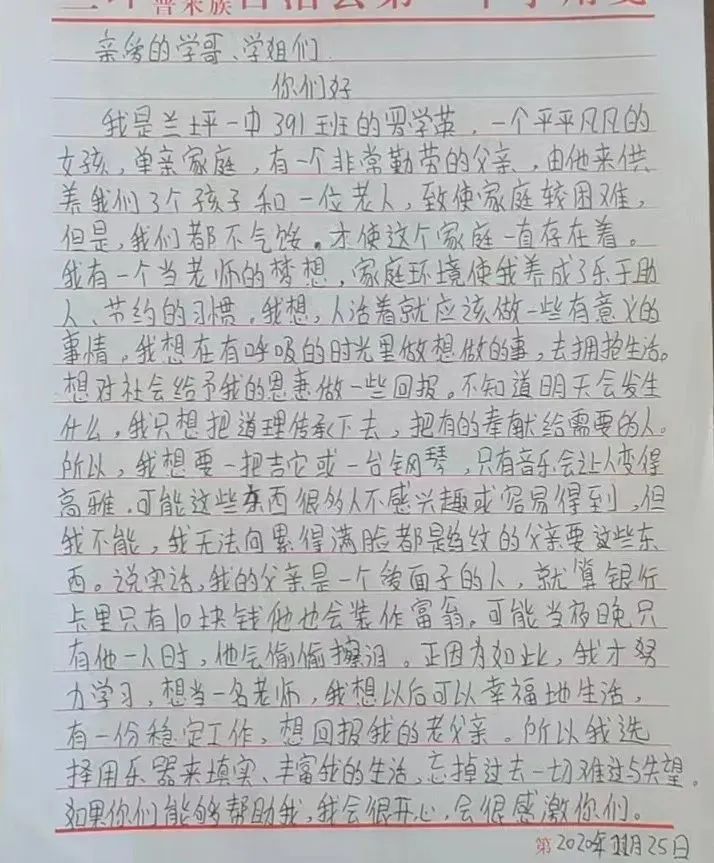 普米族自治县第一中学用笺
亲爱的学哥、学姐们
你们好
我是兰坪一中391班的罗学英，一个平平凡凡的
女孩，单亲家庭，有一个非常勤劳的父亲，由他来供
养我们3个孩子和一位老人，致使家庭较困难，
但是，我们都不气馁。才使这个家庭一直存在着。
我有一个当老师的梦想，家庭环境使我养成了乐于助
人、节约的习惯。我想，人活着就应该做一些有意义的
事情。我想在有呼吸的时光里做想做的事，去拥抱生活。
想对社会给予我的恩惠做一些回报。不知道明天会发生
什么，我只想把道理传承下去，把有的奉献给需要的人。
所以，我想要一把吉它或一台钢琴，只有音乐会让人变得
高雅，可能这些东西很多人不感兴趣或容易得到，但
我不能，我无法向累得满脸都是皱纹的父亲要这些东
西。说实话，我的父亲是一个爱面子的人，就算银行
卡里只有10块钱他也会装作富翁。可能当夜晚只
有他一人时，他会偷偷擦泪。正因为如此，我才努
力学习，想当一名老师，我想以后可以幸福地生活，
有一份稳定工作，想回报我的老父亲。所以我选
择用乐器来填实、丰富我的生活，忘掉过去一切难过与失望。
如果你们能够帮助我，我会很开心，会很感激你们。
第2020年11月25日